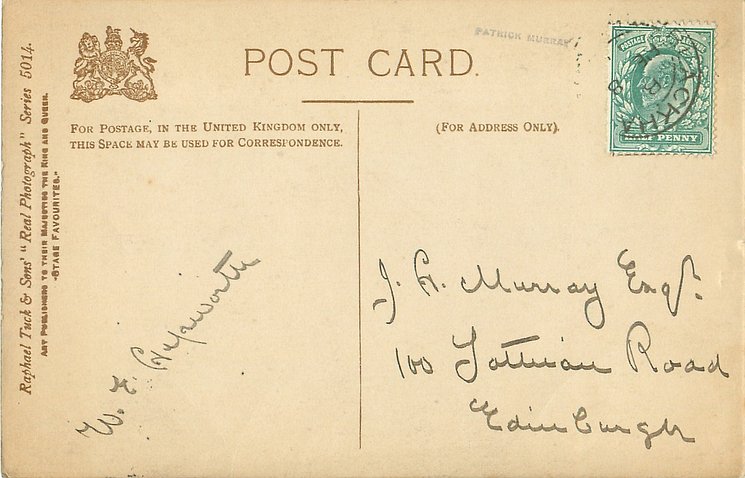 PATRICK MURRAY
POST CARD.
POSTAGE
HALF PENNY
FOR POSTAGE, IN THE UNITED KINGDOM ONLY,
THIS SPACE MAY BE USED FOR CORRESPONDENCE.
(FOR ADDRESS ONLY).
Raphael Tuck & Sons' "Real Photograph" Series 5014.
ART PUBLISHERS TO THEIR MAJESTIES THE KING AND QUEEN.
"STAGE FAVOURITES."
W. E.
J. G. Murray Esqr.
100 Lothian Road
Edinburgh